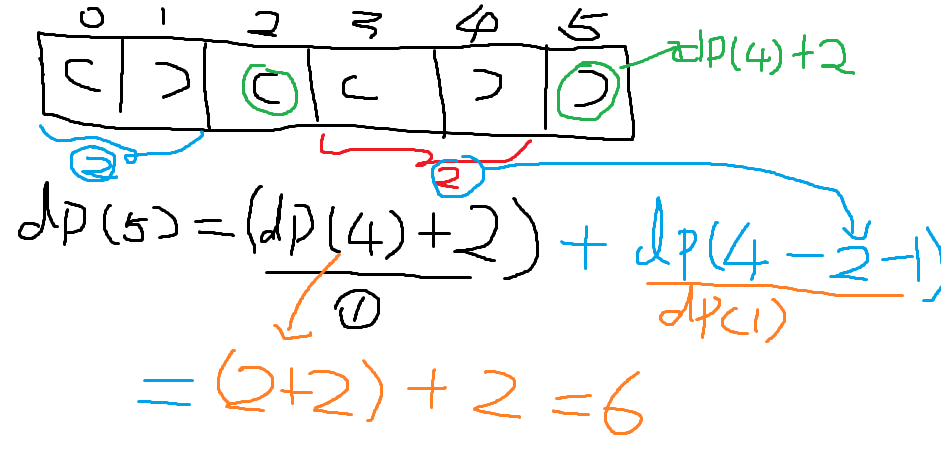 0 1 2 3 4 5
( ) ( ( ) )
dp(4)+2
2 2
dp(5)=(dp(4)+2)+dp(4-2-1)
① dp(1)
=(2+2)+2=6